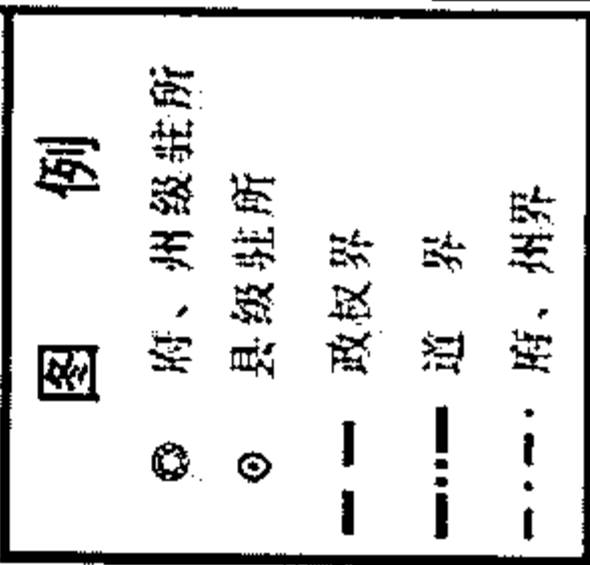 图 例
府、州级驻所
县级驻所
政权界
道 界
府、州界